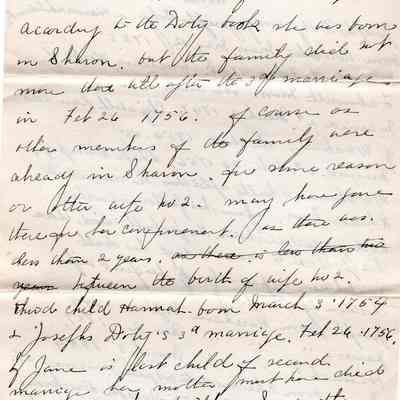 according to the Doty book she was born
in Sharon. but the family did not
move there till after the 3d marriage
in Feb 26 1756. of course as
other members of the family were
already in Sharon. for some reason
or other wife no 2. may have gone
there for her confinement. as there was.
less than 2 years. as there is less than two
years between the birth of wife no 2.
third child Hannah born March 3 1754
& Josephs Doty's 3d marriage. Feb 26. 1756.
If Jane is last child of second
marriage her mother must have died